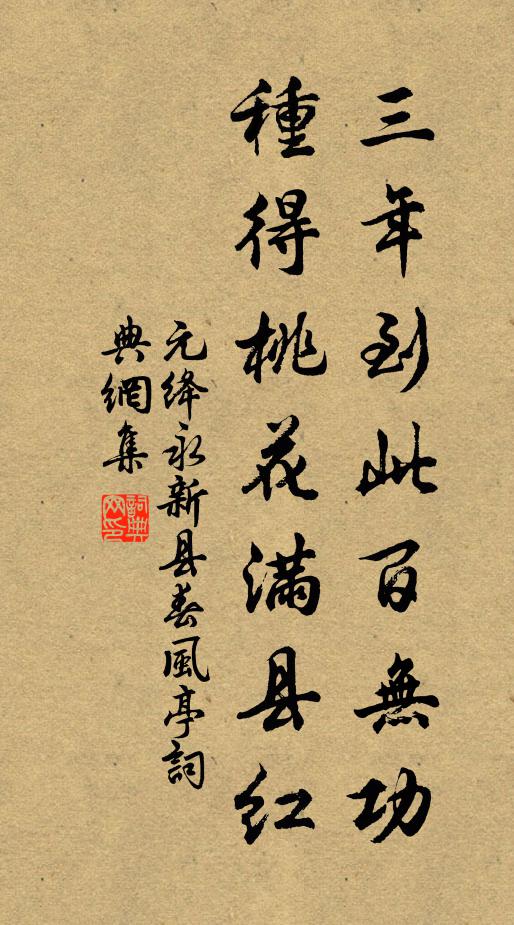 三年到此百無功
種得桃花滿县紅
元绛永新县春風亭詞
典網集
詞典
网印